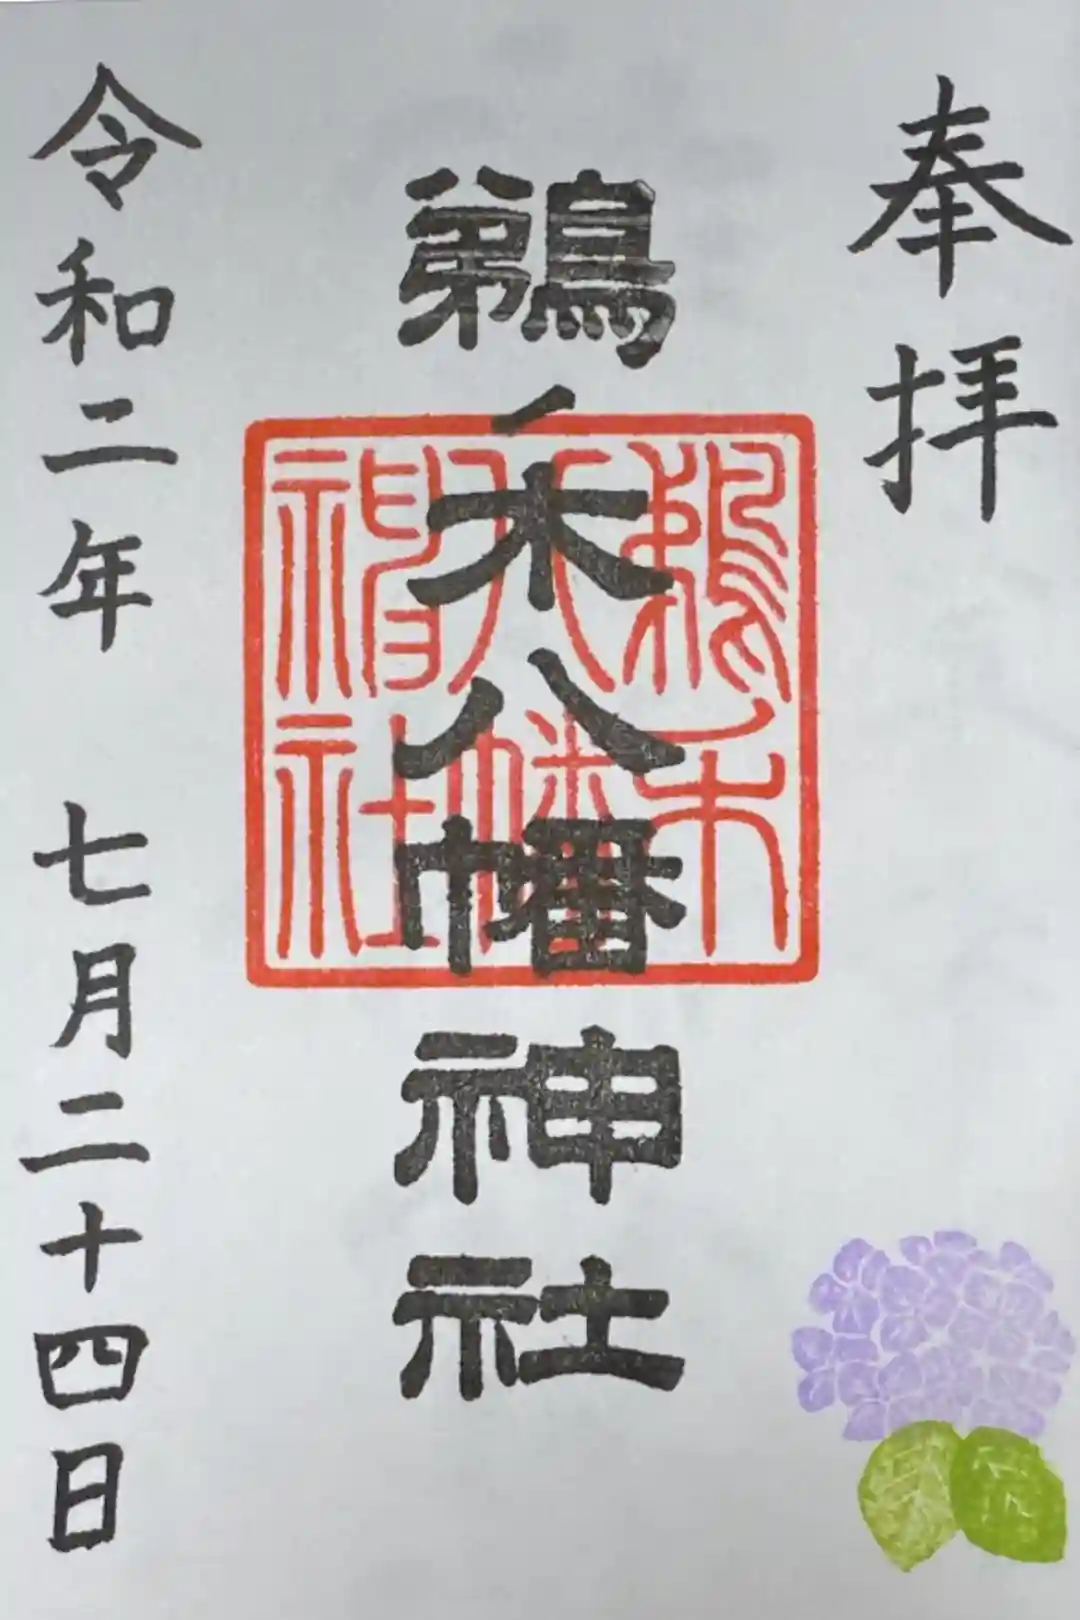 奉拝
鵜ノ木八幡神社
鵜木
八幡
神社
令和二年 七月二十四日